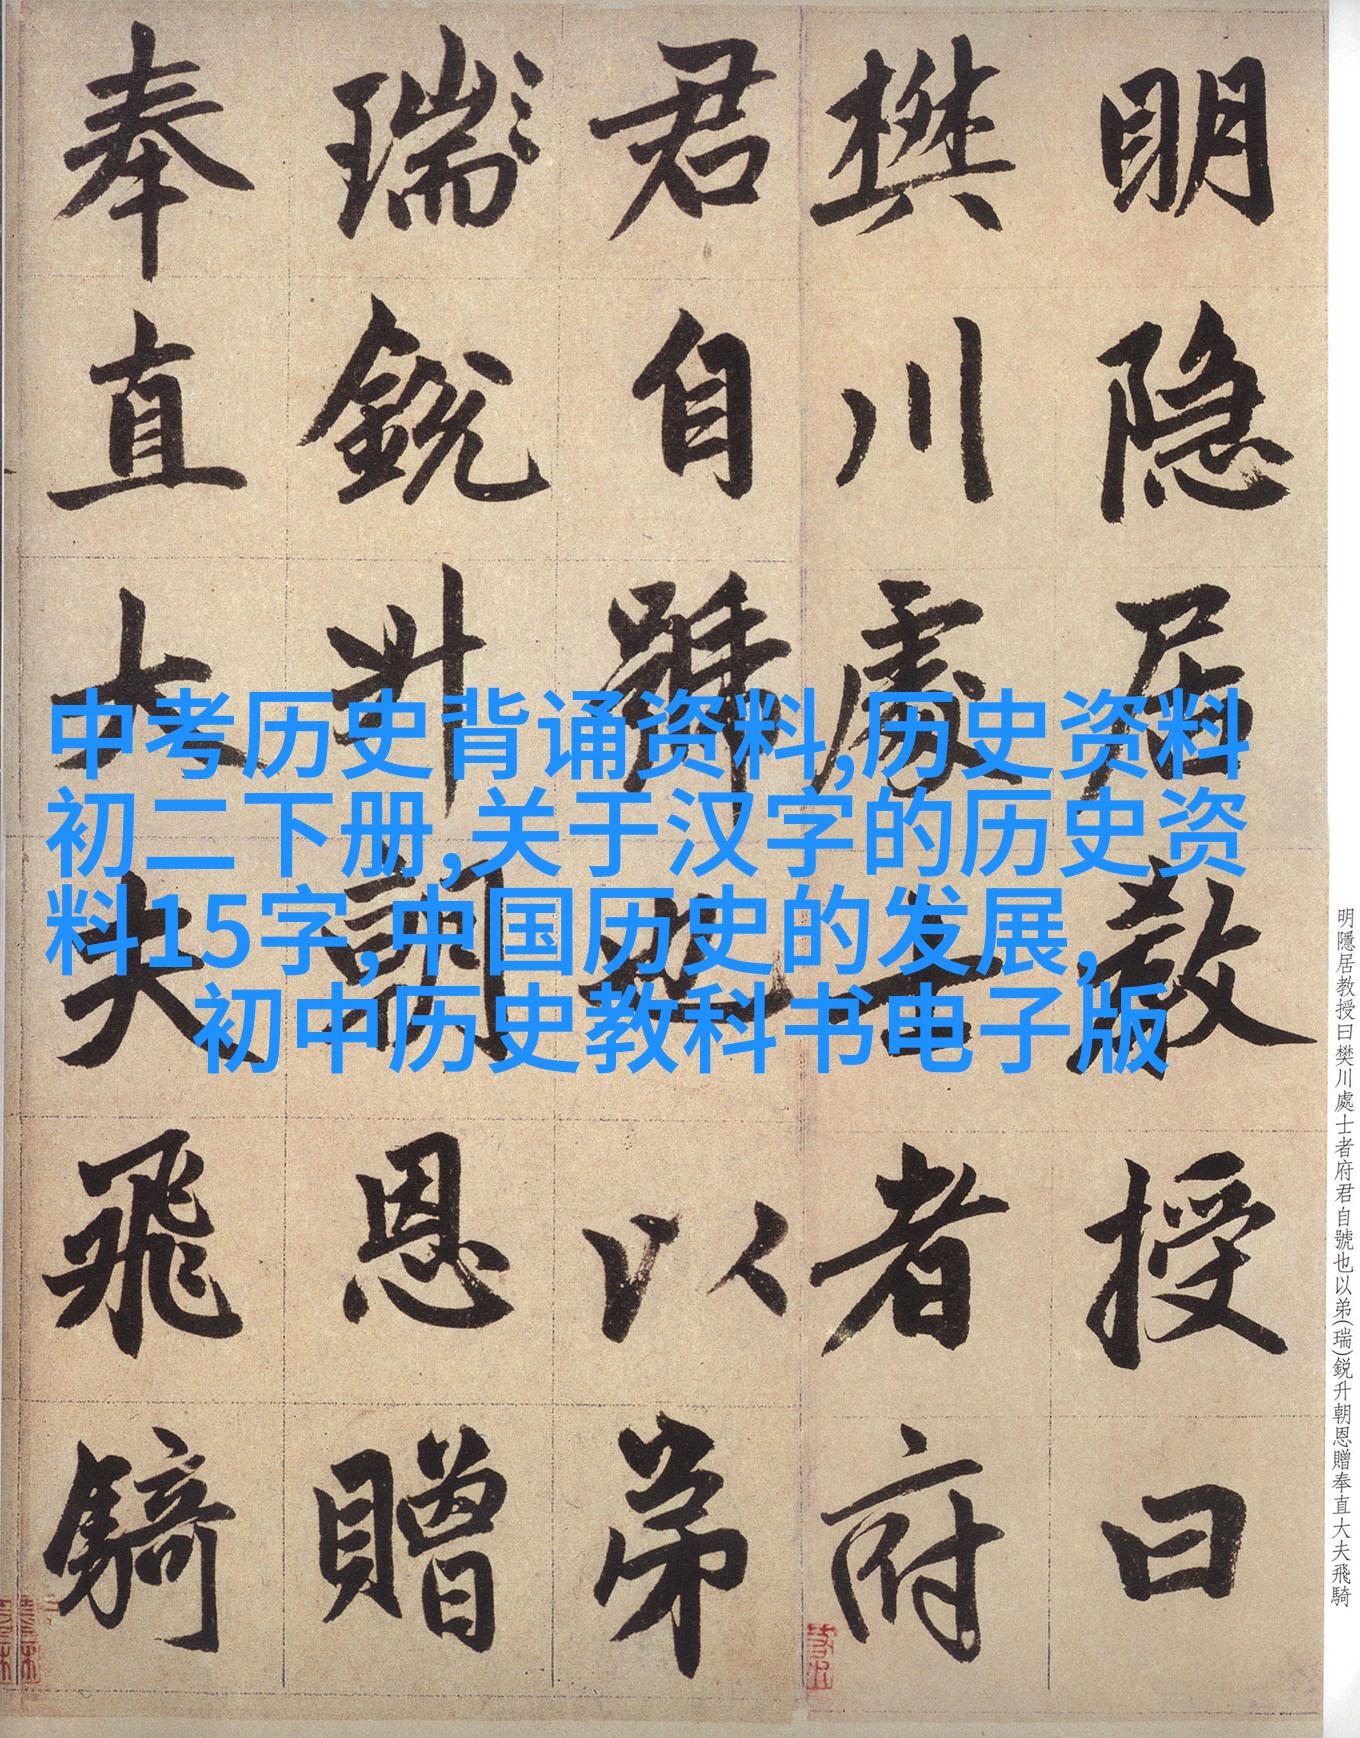 明隐居教授曰
樊川處士者府
君自號也以弟
瑞銳升朝恩贈
奉直大夫飛騎
中考历史背诵资料,历史资料
初二下册,关于汉字的历史资
料15字,中国历史的发展,
初中历史教科书电子版
明隱居教授曰樊川處士者府君自號也以弟(瑞)鋭升朝恩贈奉直大夫飛騎